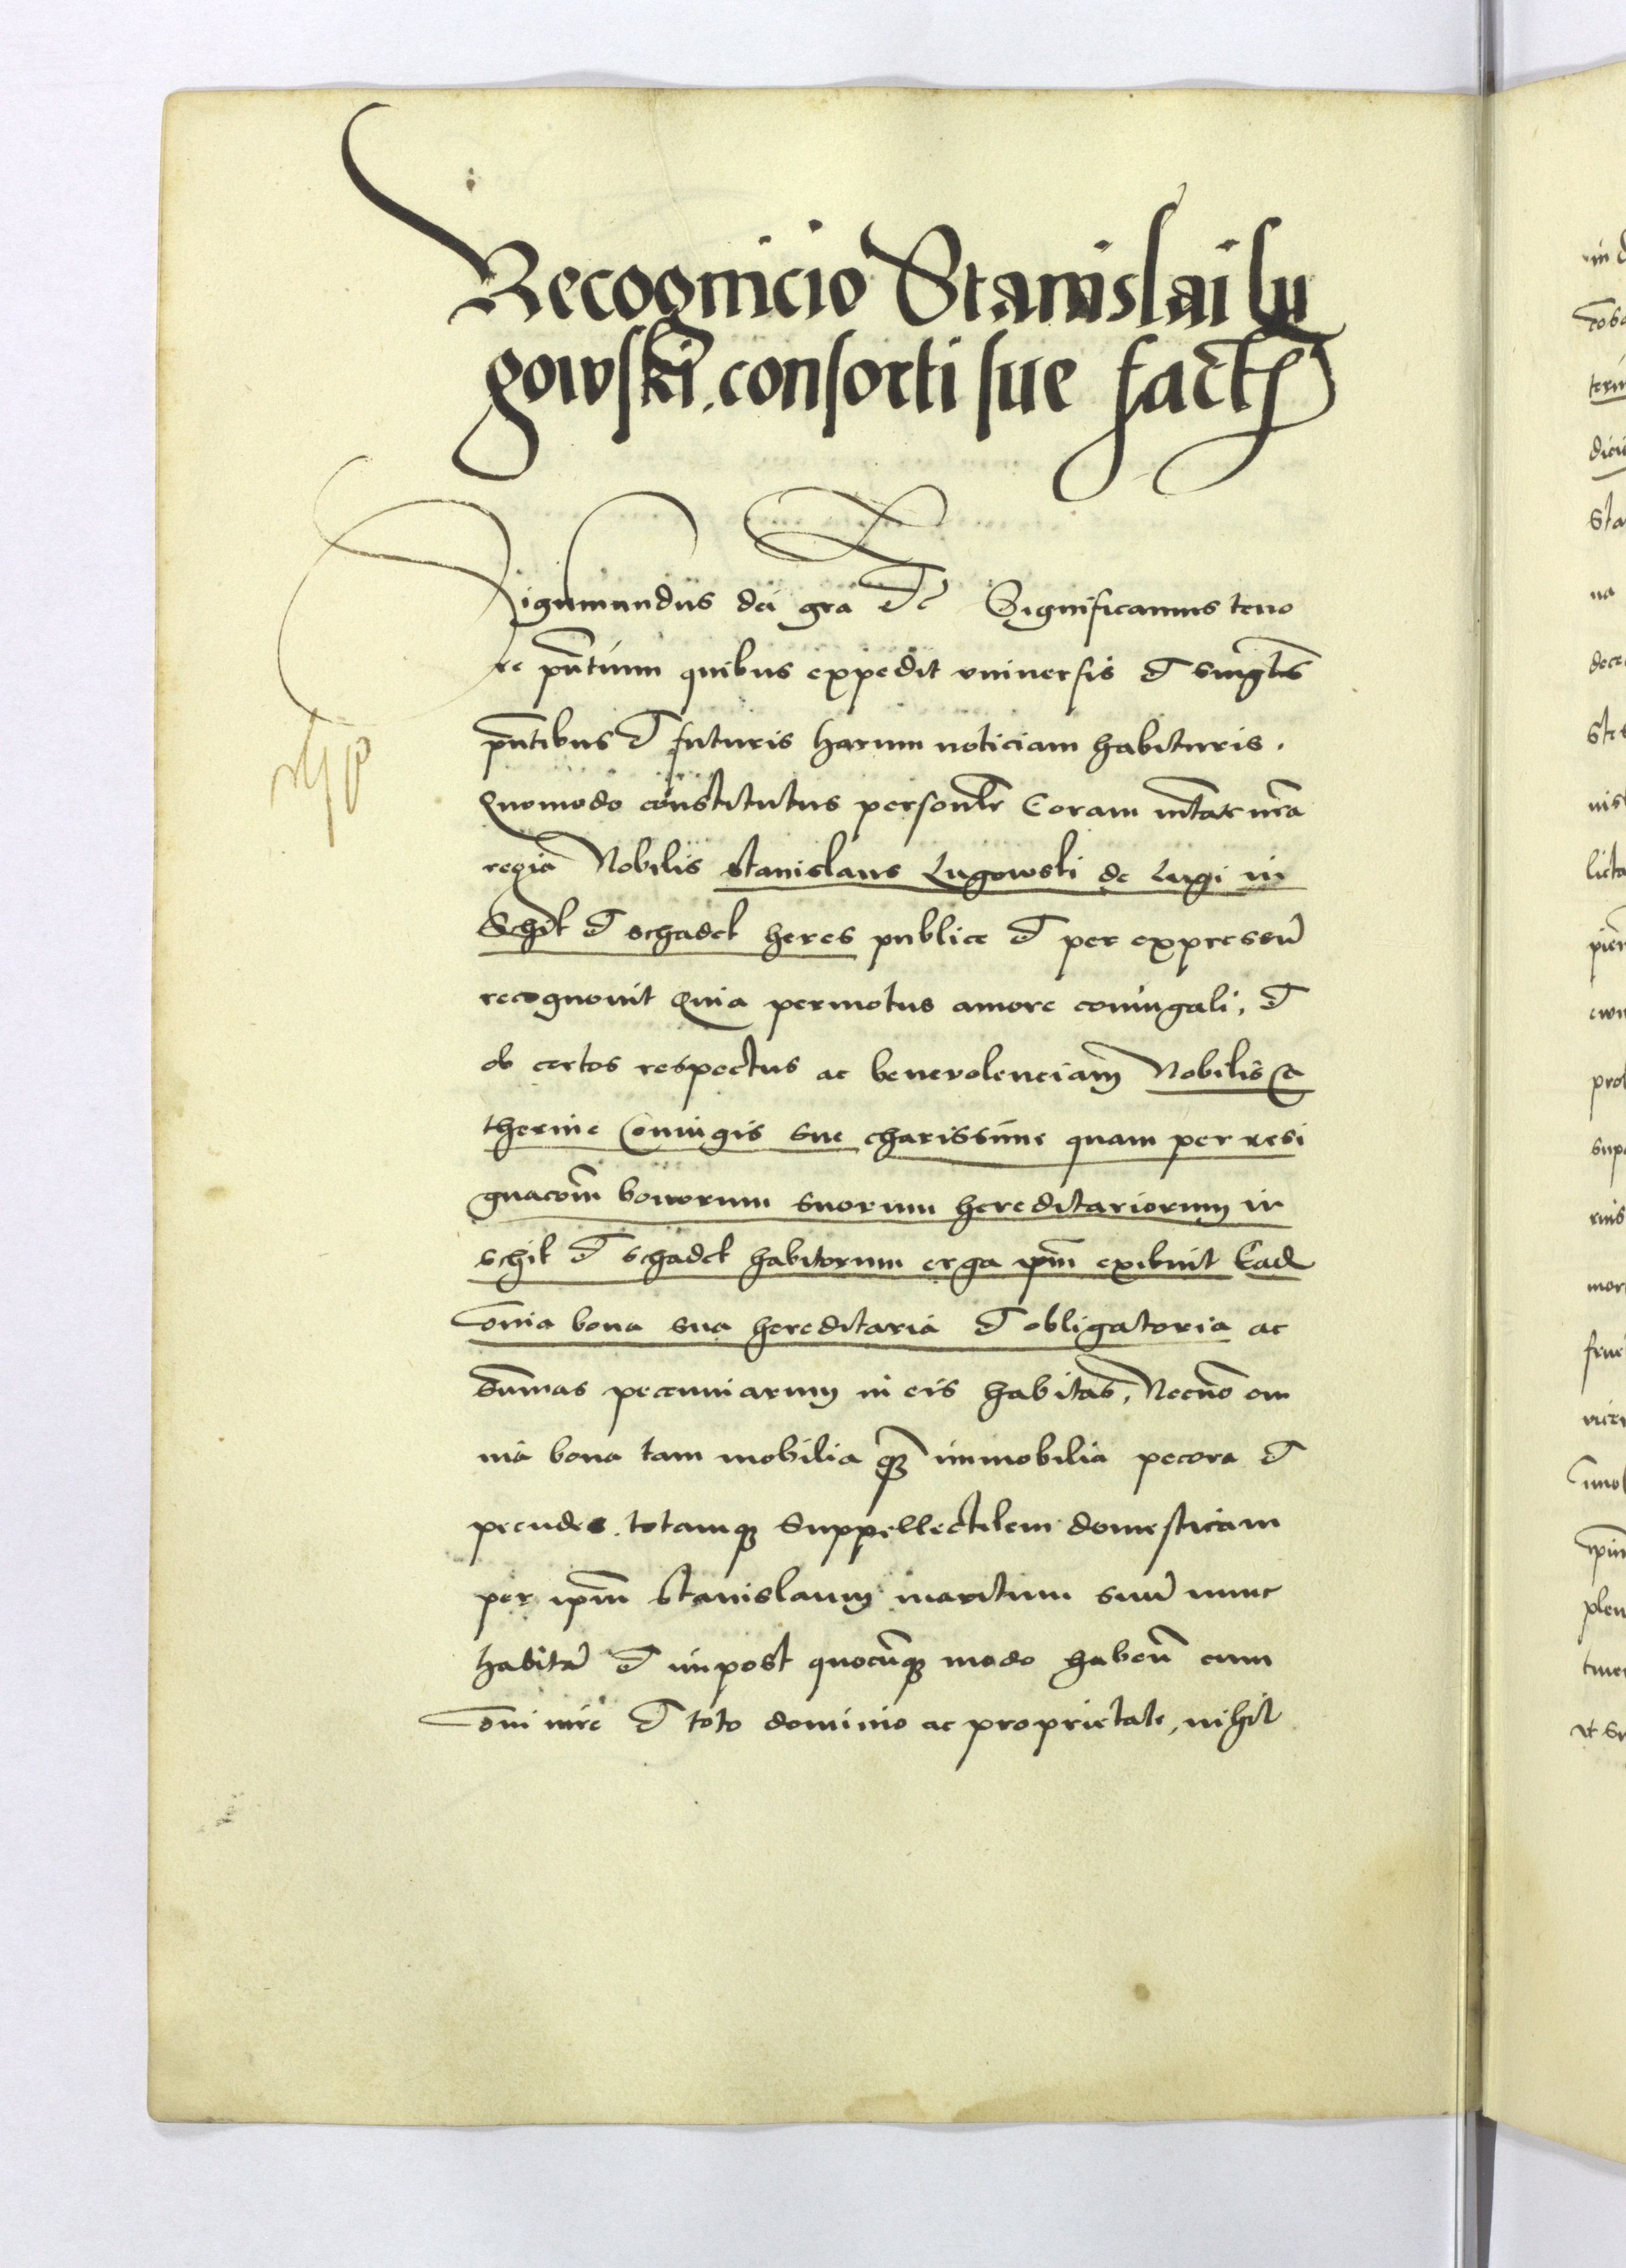 Recognicio Stanislai lu
gowski. consorti sue fact
Sigismundus dei gra etc Significamus teno
re pntium quibus expedit universis et singlis
pntibus et futuris harum noticiam habituris.
Quomodo constitutus personalr Coram mtate nra
regia Nobilis Stanislaus Lugowski de Lugi in
Schil et schadek heres publice et per expressu
recognovit Quia permotus amore coniugali, et
ob certos respectus ac benevolenciam Nobilis Ca
therine Coniugis sue charissime quam per resi
gnacom bonorum suorum hereditariorum in
schil et schadek habitorum erga ipm exibuit Ead
omia bona sua hereditaria et obligatoria ac
summas pecuniarum in eis habitas, Necno om
nia bona tam mobilia qm immobilia pecora et
pecudes. totamq Suppellectilem domesticam
per ipm Stanislaum maritum suu nunc
habita et inpost quocumq modo haben cum
omi iure et toto dominio ac proprietate, nihil